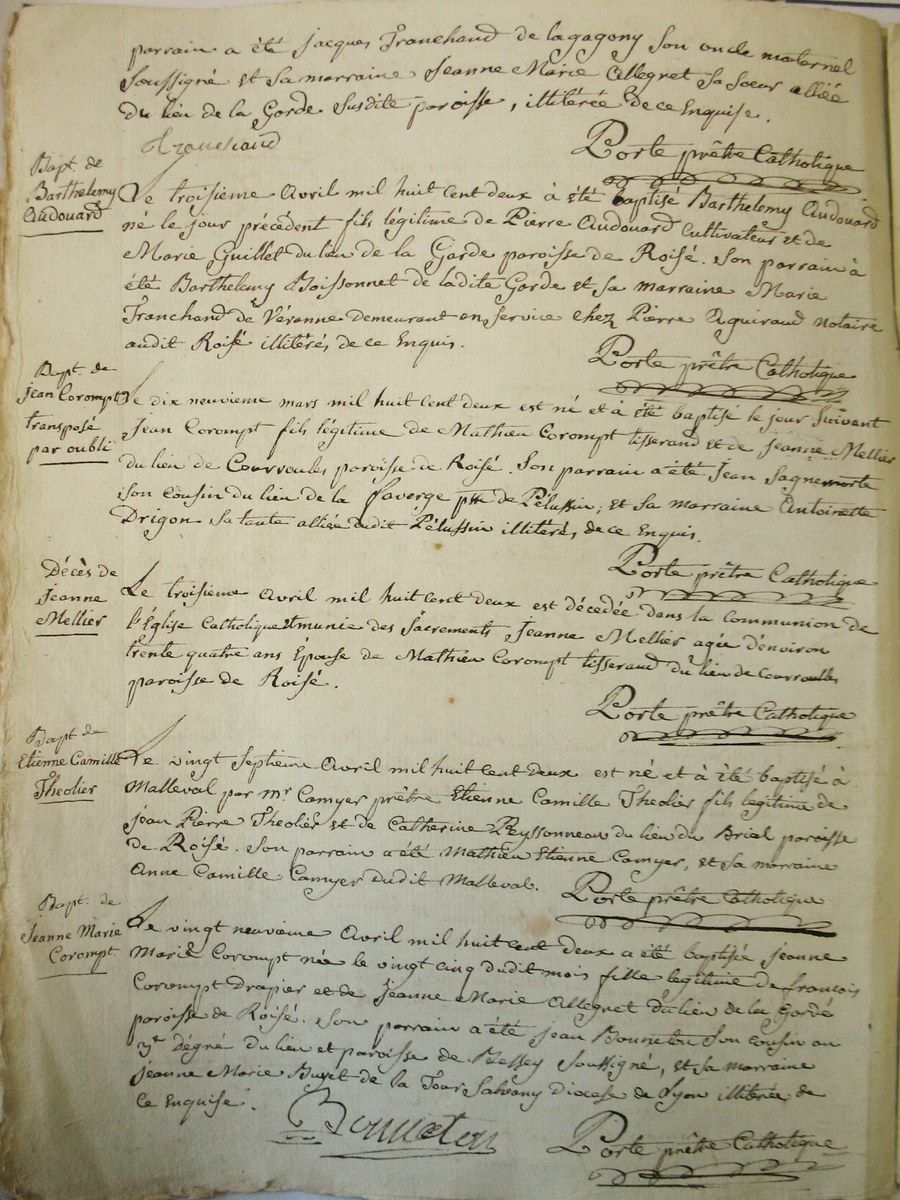 parrain a été jacques Franchand de lagagony son oncle maternel
soussigné et sa marraine Jeanne Marie Allegret sa soeur alliée
du lieu de la Garde susdite paroisse, illitérée de ce Enquise.
Franchand
Porte prêtre Catholique
Bapt. de
Barthelemy
Audouard
Le troisieme Avril mil huit cent deux à été baptisé Barthelemy Audouard
né le jour précédent fils légitime de Pierre Audouard Cultivateur et de
Marie Guillet du lieu de la Garde paroisse de Roisé. Son parrain à
été Barthelemy Boissonnet de ladite Garde et sa marraine Marie
Franchand de Véranne demeurant en service chez Pierre Aguiraud notaire
audit Roisé illitérés de ce Enquis.
Porte prêtre Catholique
Bapt. de
Jean Corompt
transposé
par oubli
Le dix neuvieme mars mil huit cent deux est né et à été baptisé le jour suivant
Jean Corompt fils légitime de Mathieu Corompt tisserand et de Jeanne Mellier
du lieu de Courroules paroisse de Roisé. Son parrain a été Jean Sagnemorte
son cousin du lieu de la faverge psse de Pélussin; et sa marraine Antoinette
Drigon sa tante alliée dudit Pélussin illitérés de ce Enquis.
Porte prêtre Catholique
Décès de
Jeanne
Mellier
Le troisieme Avril mil huit cent deux est décedée dans la Communion de
l'Église Catholique et munie des Sacrements Jeanne Mellier agée d'environ
trente quatre ans Épouse de Mathieu Corompt tisserand du lieu de Courroules
paroisse de Roisé.
Porte prêtre Catholique
Bapt de
Etienne Camille
Theolier
Le vingt Septieme Avril mil huit cent deux est né et à été baptisé à
Malleval par mr Camyer prêtre Etienne Camille Theolier fils legitime de
jean Pierre Theolier et de Catherine Peyssonneau du lieu du Briat paroisse
de Roisé. Son parrain a été Mathieu Etienne Camyer, et sa marraine
Anne Camille Camyer dudit Malleval.
Porte prêtre Catholique
Bapt. de
Jeanne Marie
Corompt
Le vingt neuvieme Avril mil huit cent deux a été baptisée jeanne
Marie Corompt née le vingt cinq dudit mois fille legitime de francois
Corompt drapier et de Jeanne Marie Allegret du lieu de la Garde
paroisse de Roisé. Son parrain a été jean Bonneton son cousin au
3e dégré du lieu et paroisse de Bessey soussigné, et sa marraine
jeanne Marie Buyet de la Tour Salvany Diocese de Lyon illitérée de
ce Enquise.
Bonneton
Porte prêtre Catholique